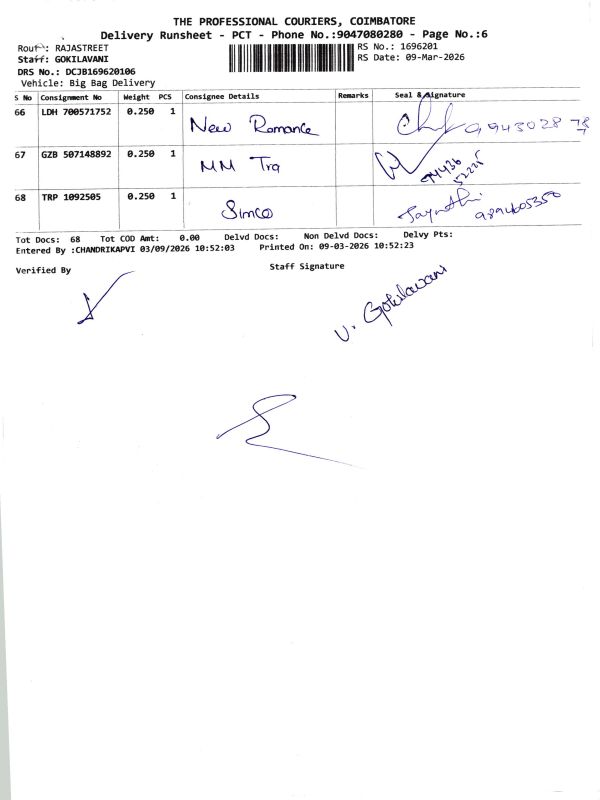 THE PROFESSIONAL COURIERS, COIMBATORE
Delivery Runsheet - PCT - Phone No.:9047080280 - Page No.:6
Route: RAJASTREET
RS No.: 1696201
Staff: GOKILAVANI
RS Date: 09-Mar-2026
DRS No.: DCJB169620106
Vehicle: Big Bag Delivery
S No Consignment No Weight PCS Consignee Details Remarks Seal & Signature
66 LDH 700571752 0.250 1 New Romance 99430287878
67 GZB 507148892 0.250 1 MM Tra
68 TRP 1092505 0.250 1 Simco Jaynthi 9894605350
Tot Docs: 68 Tot COD Amt: 0.00 Delvd Docs: Non Delvd Docs: Delvy Pts:
Entered By :CHANDRIKAPVI 03/09/2026 10:52:03 Printed On: 09-03-2026 10:52:23
Verified By Staff Signature
V. Gokilavani